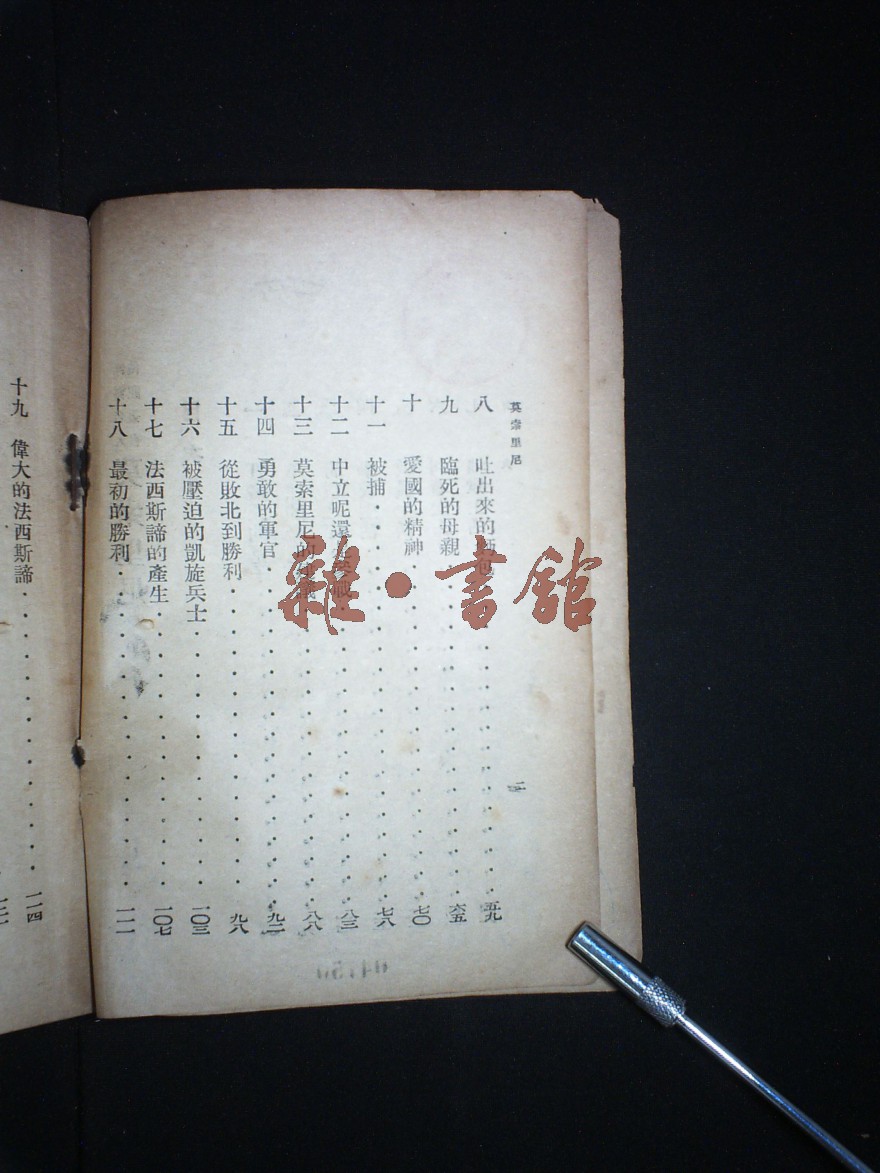 莫索里尼
八 吐出來的麵包 五九
九 臨死的母親 六五
十 愛國的精神 七〇
十一 被捕 七八
十二 中立呢還 八三
十三 莫索里尼的 八八
十四 勇敢的軍官 九二
十五 從敗北到勝利 九八
十六 被壓迫的凱旋兵士 一〇三
十七 法西斯諦的產生 一〇七
十八 最初的勝利 一一一
十九 偉大的法西斯諦 一一四
雜·書館